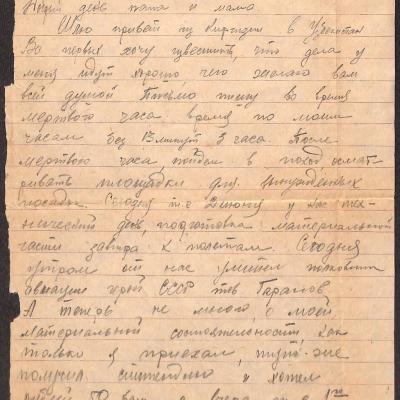 день папа и мама.
Шлю привет из Киргизии в Узбекистан
Во первых хочу известить, что дела у
меня идут хорошо, чего желаю вам
всей душой. Письмо пишу во время
мертвого часа время по моим
часам без 13 минут 3 часа. После
мертвого часа пойдем в поход осмат-
ривать площадки для вынужденных
посадок. Сегодня т.е 2 июня у нас тех-
нический день, подготовка материальной
части завтра к полетам. Сегодня
утром от нас полковник
авиации герой СССР тов Таранов
А теперь не много о моей
материальной состоятельности, как
только я приехал, тут-же
получил стипендию и хотел